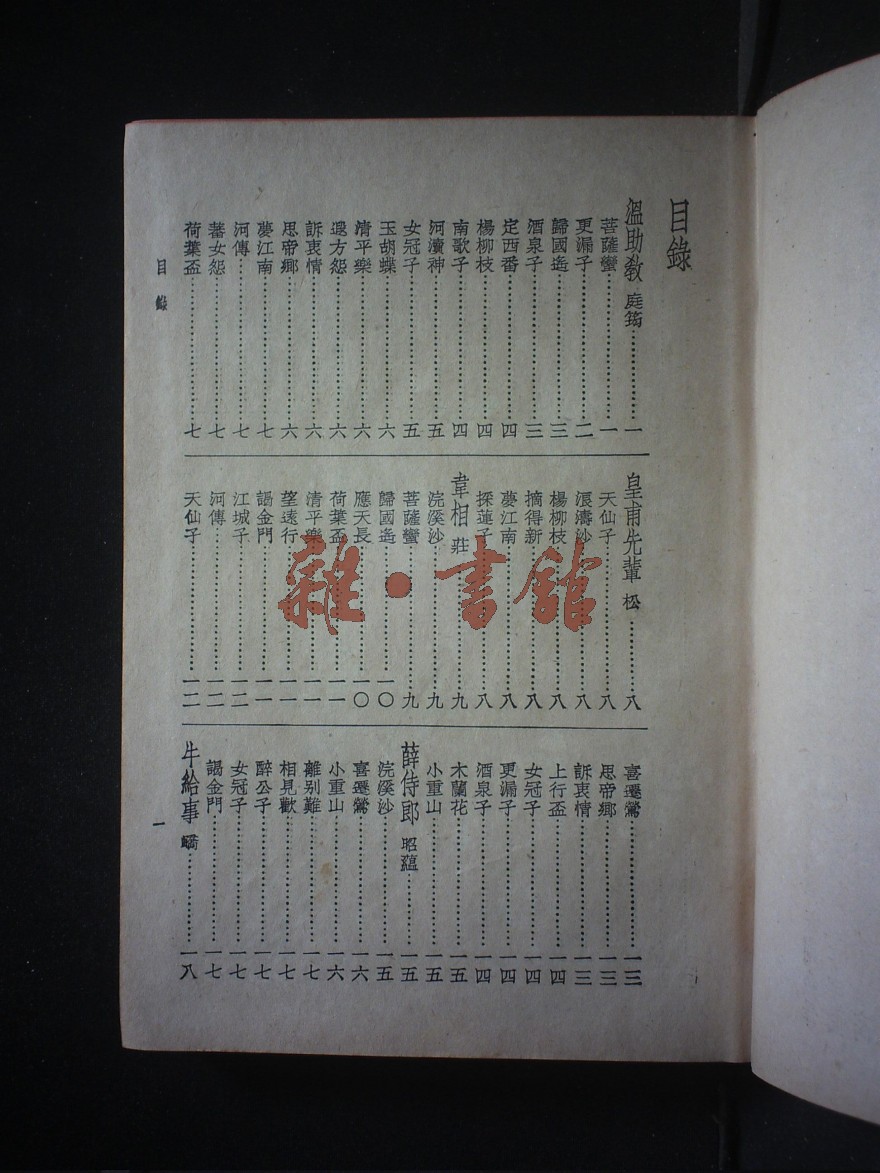 目錄
溫助教 庭筠……一
菩薩蠻……一
更漏子……二
歸國遙……三
酒泉子……三
定西番……四
楊柳枝……四
南歌子……四
河瀆神……五
女冠子……五
玉胡蝶……六
清平樂……六
遐方怨……六
訴衷情……六
思帝鄉……六
夢江南……七
河傳……七
蕃女怨……七
荷葉盃……七
皇甫先輩 松……八
天仙子……八
浪濤沙……八
楊柳枝……八
摘得新……八
夢江南……八
採蓮子……八
韋相 莊……九
浣溪沙……九
菩薩蠻……九
歸國遙……一〇
應天長……一〇
荷葉盃……一一
清平樂……一一
望遠行……一一
謁金門……一一
江城子……一二
河傳……一二
天仙子……一二
喜遷鶯……一三
思帝鄉……一三
訴衷情……一三
上行盃……一四
女冠子……一四
更漏子……一四
酒泉子……一四
木蘭花……一五
小重山……一五
薛侍郎 昭蘊……一五
浣溪沙……一五
喜遷鶯……一六
小重山……一六
離別難……一七
相見歡……一七
醉公子……一七
女冠子……一七
謁金門……一七
牛給事 嶠……一八
目錄
一
雜·書館